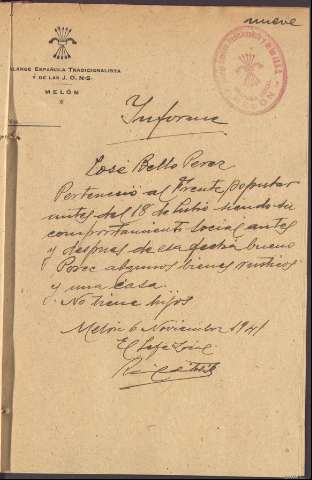 nueve
ALANGE ESPAÑOLA TRADICIONALISTA
Y DE LAS J. O. N-S
MELÓN
Informe
José Bello Perez
Pertenecio al Frente popular
antes del 18 de Julio siendo su
comportamiento social antes
y despues de esa fecha bueno
Posee algunos bienes rusticos
y una casa.
No tiene hijos
Melón 6 Noviembre 1941
El Jefe Local